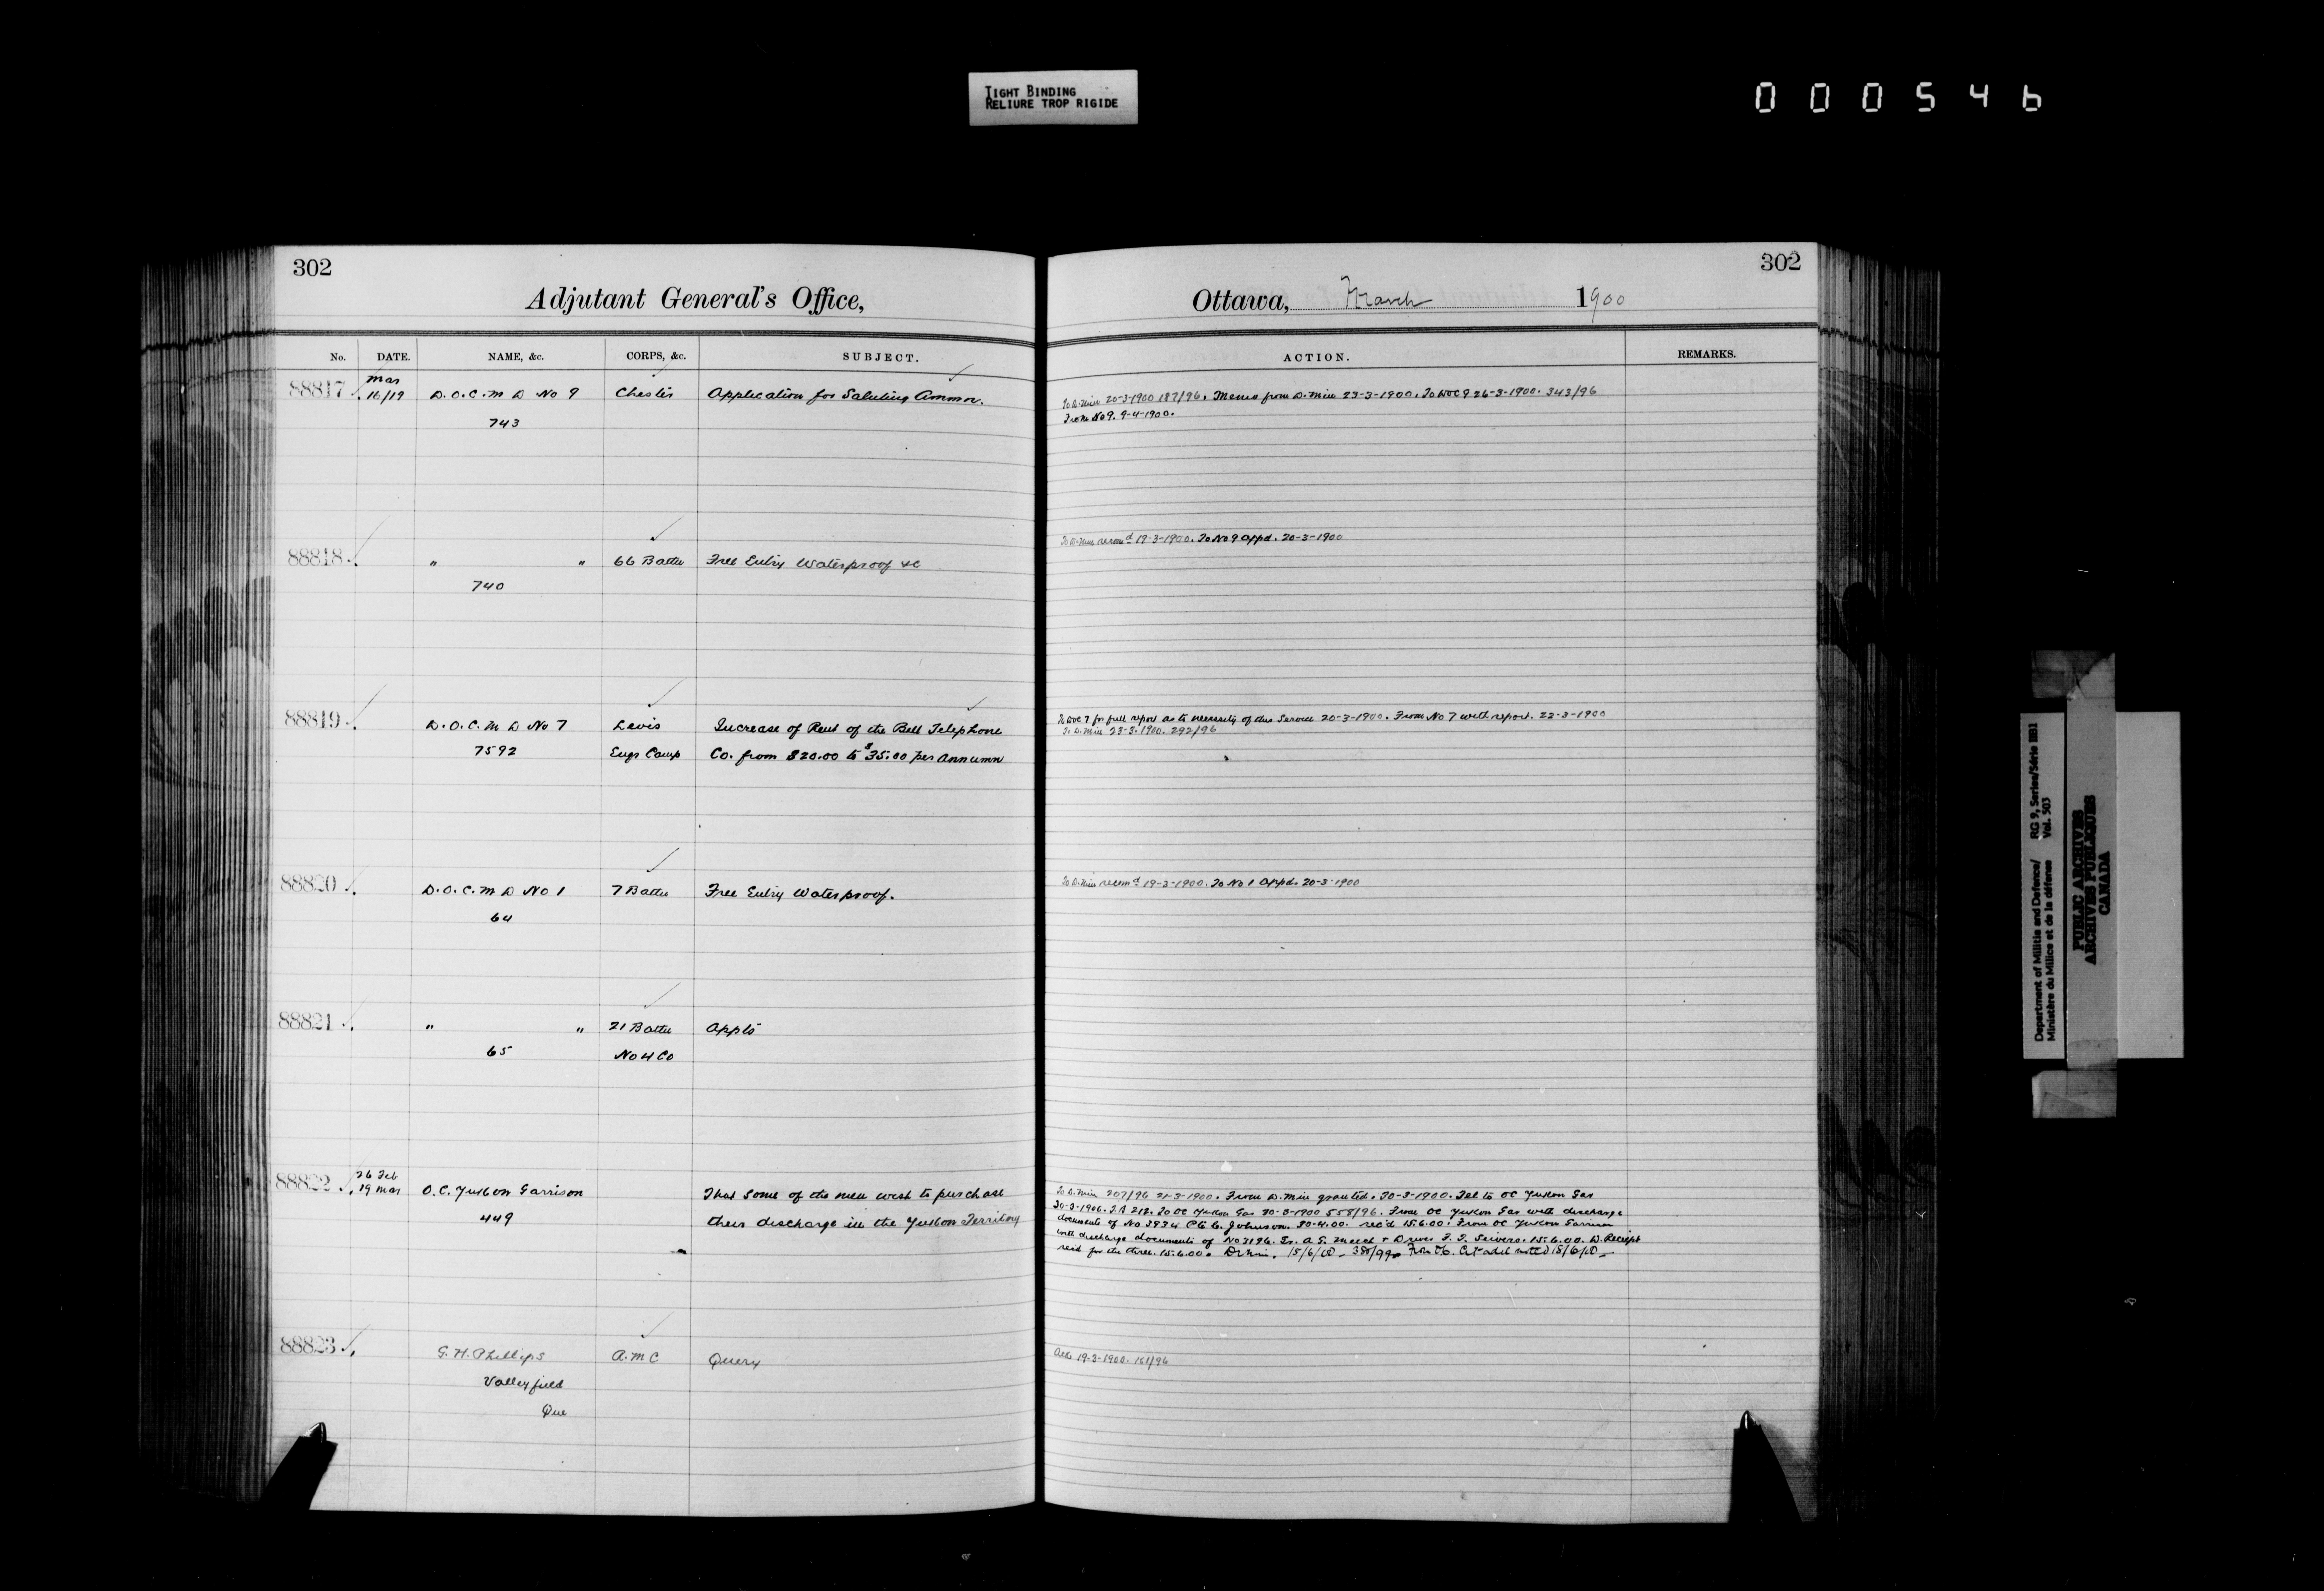 TIGHT BINDING
RELIURE TROP RIGIDE
000546
302
Adjutant General's Office,
No. DATE. NAME, &c. CORPS, &c. SUBJECT.
88817 Mar 16/19 D.O.C.M D No 9 Chester Application for Saluting Ammn.
743
88818 " " 66 Battn Free Entry Waterproof &c
740
88819 D.O.C.M D No 7 Levis Increase of Rent of the Bell Telephone
7592 Engr Camp Co. from $20.00 to $35.00 per annumn
88820 D.O.C.M D No 1 7 Battn Free Entry Waterproof.
64
88821 " " 21 Battn Appts
65 No 4 Co
88822 26 Feb
19 Mar O.C. Yukon Garrison That some of the men wish to purchase
449 their discharge in the Yukon Territory
88823 G.H. Phillips A.M.C Query
Valleyfield
Que
302
Ottawa, March 1900
ACTION. REMARKS.
To D.Min 20-3-1900 187/96. Memo from D.Min 23-3-1900. To DOC 9 26-3-1900. 343/96
From No 9. 9-4-1900.
To D.Min recomd 19-3-1900. To No 9 Appd. 20-3-1900
To DOC 7 for full report as to necessity of this Service 20-3-1900. From No 7 with report. 22-3-1900
To D.Min 23-3-1900. 292/96
To D.Min recomd 19-3-1900. To No 1 Appd. 20-3-1900
To D.Min 207/96 21-3-1900. From D.Min granted. 30-3-1900. Tel to OC Yukon Gar
30-3-1900. To OC Yukon Gar 30-3-1900 558/96. From OC Yukon Gar with discharge
documents of No Pte C. Johnson. 30-4.00. rec'd 15.6.00. From OC Yukon Garrison
with discharge documents of No 3196. 15.6.00. Receipt
recd for the three. 15.6.00. D.Min. 15/6/00 - 380/99 From Citadel noted 15/6/00
Ack 19-3-1900. 161/96
Department of Militia and Defence/ RG 9, Series/Série IIB1
Ministère du Milice et de la défense Vol. 503
PUBLIC ARCHIVES
ARCHIVES PUBLIQUES
CANADA